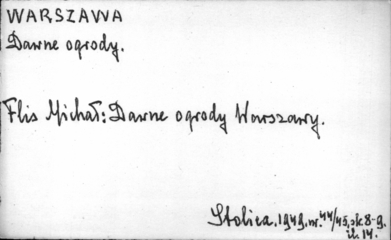 WARSZAWA
Dawne ogrody.
Flis Michał: Dawne ogrody Warszawy.
Stolica. 1949. nr. 44/45, s. 8-9.
il. 14.